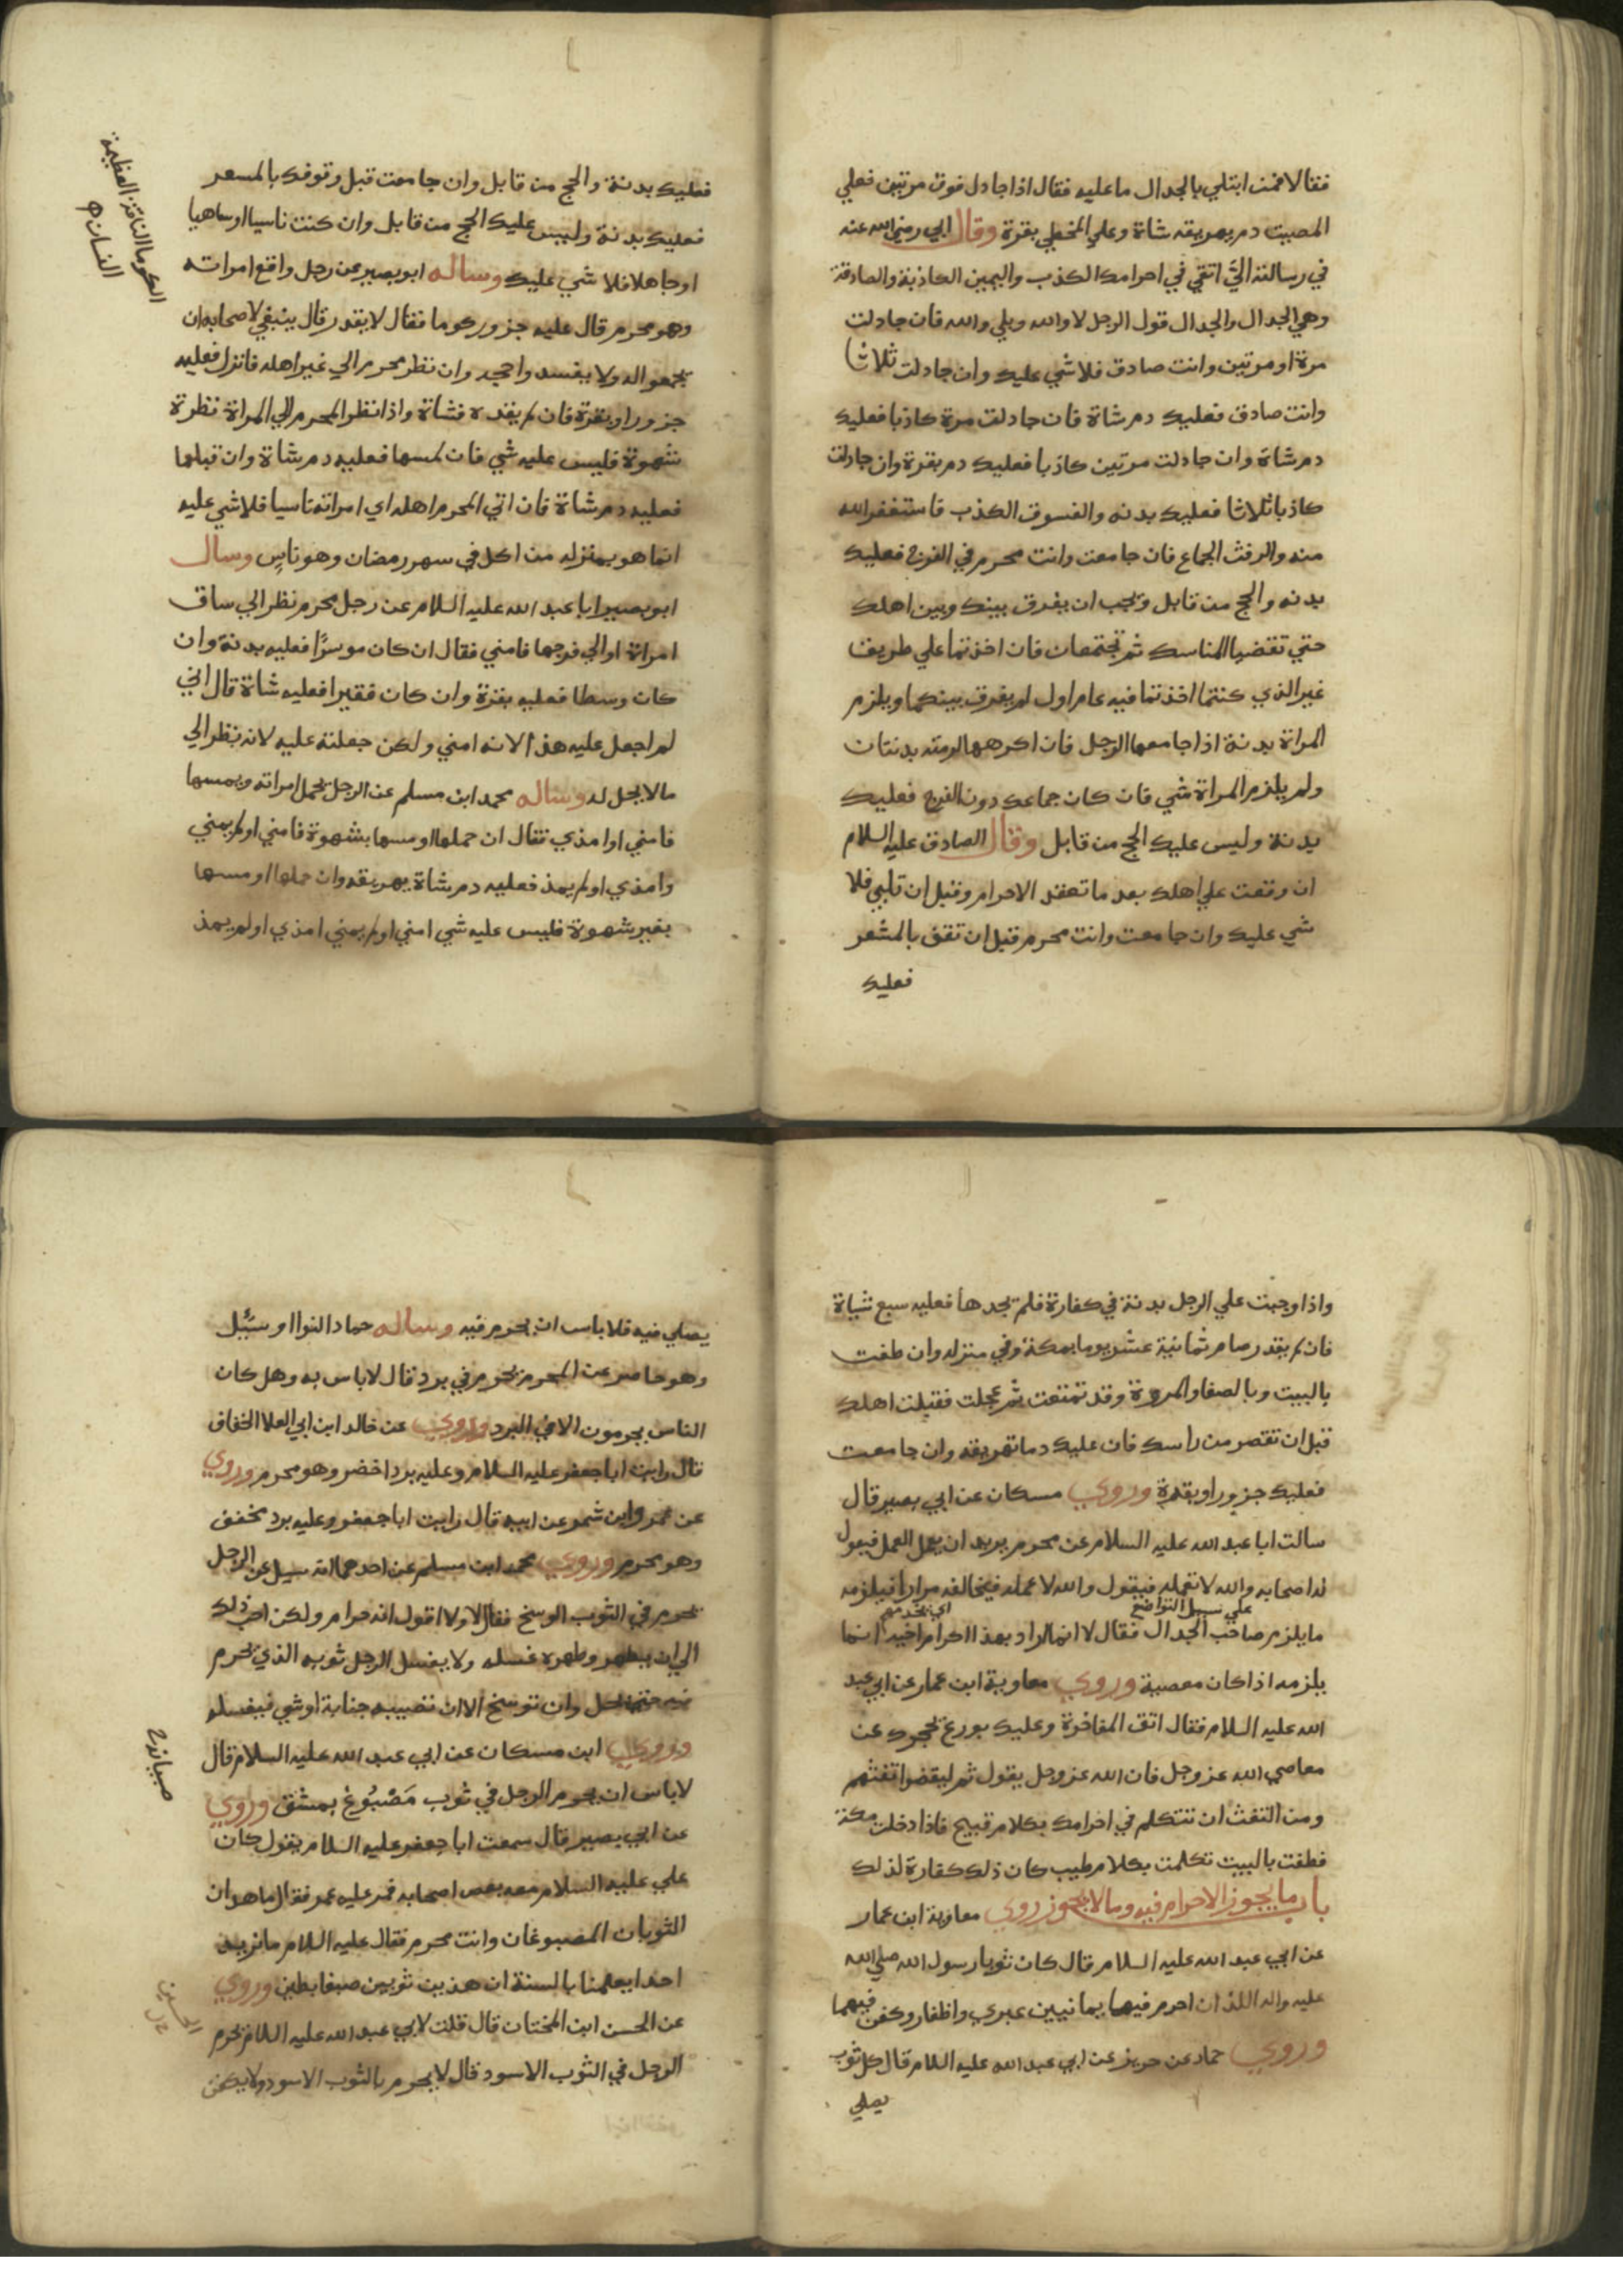 فقالا فمن ابتلي بالجدال ما عليه فقال اذا جادل فوق مرتين فعلي
المصيب دم يهريقه شاة وعلي المخطي بقرة وقال ابي رضي الله عنه
في رسالته الي اتقي في احرامك الكذب واليمين الكاذبة والصادقة
وهي الجدال والجدال قول الرجل لا والله وبلي والله فان جادلت
مرة او مرتين وانت صادق فلا شي عليك وان جادلت ثلاثا
وانت صادق فعليك دم شاة فان جادلت مرة كاذبا فعليك
دم شاة وان جادلت مرتين كاذبا فعليك دم بقرة وان جادلت
كاذبا ثلاثا فعليك بدنه والفسوق الكذب فاستغفر الله
منه والرفث الجماع فان جامعت وانت محرم في الفرج فعليك
بدنه والحج من قابل ويجب ان يفرق بينك وبين اهلك
حتي تقضيا المناسك ثم تجتمعان فان اخذتما علي طريق
غير الذي كنتما اخذتما فيه عام اول لم يفرق بينكما ويلزم
المراة بدنة اذا جامعها الرجل فان اكرهها لزمته بدنتان
ولم يلزم المراة شي فان كان جماعك دون الفرج فعليك
بدنة وليس عليك الحج من قابل وقال الصادق عليه السلام
ان وقعت علي اهلك بعد ما تعقد الاحرام وقبل ان تلبي فلا
شي عليك وان جامعت وانت محرم قبل ان تقف بالمشعر
فعليك
فعليك بدنة والحج من قابل وان جامعت قبل وقوفك بالمسعر
فعليك بدنة وليس عليك الحج من قابل وان كنت ناسيا او ساهيا
او جاهلا فلا شي عليك وساله ابو بصير عن رجل واقع امراته
وهو محرم قال عليه جزور كوما فقال لا يقدر قال ينبغي لاصحابه ان
يجمعوا له ولا يفسدوا حجه وان نظر محرم الي غير اهله فانزل فعليه
جزور او بقرة فان لم يقدر فشاة واذا نظر المحرم الي المراة نظرة
شهوة فليس عليه شي فان لمسها فعليه دم شاة وان قبلها
فعليه دم شاة فان اتي المحرم اهله اي امراته ناسيا فلا شي عليه
انما هو بمنزله من اكل في سهر رمضان وهو ناسٍ وسال
ابو بصير ابا عبد الله عليه السلام عن رجل محرم نظر الي ساق
امراة او الي فرجها فامني فقال ان كان موسرًا فعليه بدنة وان
كان وسطا فعليه بقرة وان كان فقيرا فعليه شاة قال اني
لم اجعل عليه هذا لانه امني ولكن جعلته عليه لانه نظر الي
ما لا يحل له وساله محمد ابن مسلم عن الرجل يحمل امراته ويمسها
فامني او امذي فقال ان حملها او مسها بشهوة فامني او لم يمني
وامذي او لم يمذ فعليه دم شاة يهريقه وان حملها او مسها
بغير شهوة فليس عليه شي امني او لم يمني امذي او لم يمذ
الكوما الناقة العظيمة
السنام
واذا وجبت علي الرجل بدنة في كفارة فلم يجدها فعليه سبع شياة
فان لم يقدر صام ثمانية عشر يوما بمكة وفي منزله وان طفت
بالبيت وبالصفا والمروة وقد تمتعت ثم عجلت فقبلت اهلك
قبل ان تقصر من راسك فان عليك دما تهريقه وان جامعت
فعليك جزور او بقرة وروي مسكان عن ابي بصير قال
سالت ابا عبد الله عليه السلام عن محرم يريد ان يعمل العمل فيقول
له اصحابه والله لا تعمله فيقول والله لاعمله فيخالفه مرارا فيلزمه
علي سبيل التواضع
ما يلزم صاحب الجدال فقال لا انما اراد بهذا اكرام اخيه انما
يلزمه اذا كان معصية وروي معاوية ابن عمار عن ابي عبد
الله عليه السلام فقال اتق المفاخرة وعليك بورع يحجرك عن
معاصي الله عز وجل فان الله عز وجل يقول ثم ليقضوا تفثهم
ومن التفث ان تتكلم في احرامك بكلام قبيح فاذا دخلت مكة
فطفت بالبيت تكلمت بكلام طيب كان ذلك كفارة لذلك
باب ما يجوز الاحرام فيه وما لا يجوز روي معاوية ابن عمار
عن ابي عبد الله عليه السلام قال كان ثوبا رسول الله صلي الله
عليه واله اللذان احرم فيهما يمانيين عبري واظفار وكفن فيهما
وروي حماد عن حريز عن ابي عبد الله عليه السلام قال كل ثوب
يصلي
يصلي فيه فلا باس ان يحرم فيه وساله حماد النوا او سئل
وهو حاضر عن المحرم يحرم في برد قال لا باس به وهل كان
الناس يحرمون الا في البرد وروي عن خالد ابن ابي العلا الخفاف
قال رايت ابا جعفر عليه السلام وعليه برد اخضر وهو محرم وروي
عن عمرو ابن شمر عن ابيه قال رايت ابا جعفر وعليه برد مخفف
وهو محرم وروي محمد ابن مسلم عن احدهما انه سيل عن الرجل
يحرم في الثوب الوسخ فقال لا ولا اقول انه حرام ولكن احب ذلك
الي ان يطهر وطهره غسله ولا يغسل الرجل ثوبه الذي يحرم
فيه حتي يحل وان توسخ الا ان تصيبه جنابة او شي فيغسله
وروي ابن مسكان عن ابي عبد الله عليه السلام قال
لا باس ان يحرم الرجل في ثوب مَصْبُوغ بمشق وروي
عن ابي بصير قال سمعت ابا جعفر عليه السلام يقول كان
علي عليه السلام معه بعض اصحابه فمر عليه عمر فقال ما هذان
الثوبان المصبوغان وانت محرم فقال عليه السلام ما نريد
احدا يعلمنا بالسنة ان هذين ثوبين صبغا بطين وروي
عن الحسن ابن المختان قال قلت لابي عبد الله عليه السلام يحرم
الرجل في الثوب الاسود قال لا يحرم بالثوب الاسود ولا يكفن
الحسين